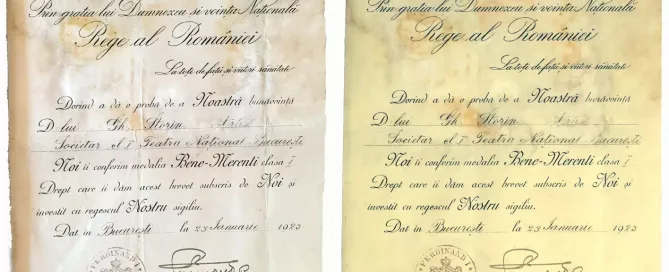 Prin grația lui Dumnezeu si voința Națională
Rege al României
La toți de față și viitori sănătate
Dorind a dà o probă de a Noastră bunăvoință
D lui Gh. Storin
Societar cl I Teatru Național București
Noi îi conferim medalia Bene-Merenti clasa I
Drept care îi dăm acest brevet subscris de Noi și
investit cu regescul Nostru sigiliu.
Dat in București la 23 Ianuarie 1923
FERDINAND I
Prin grația lui Dumnezeu si voința Națională
Rege al României
La toți de față și viitori sănătate
Dorind a dà o probă de a Noastră bunăvoință
D lui Gh. Storin
Societar cl I Teatru Național București
Noi îi conferim medalia Bene-Merenti clasa I
Drept care îi dăm acest brevet subscris de Noi și
investit cu regescul Nostru sigiliu.
Dat in București la 23 Ianuarie 1923
FERDINAND I